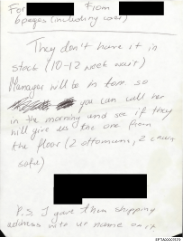 For from
6 pages (including cover)
They don't have it in
stock (10-12 week wait)
Manager will be in tom. so
you can call her
in the morning and see if they
will give us the one from
the floor (2 ottomans, 2 chairs
sofa)
P.S I gave them shipping
address
EFTA00007579